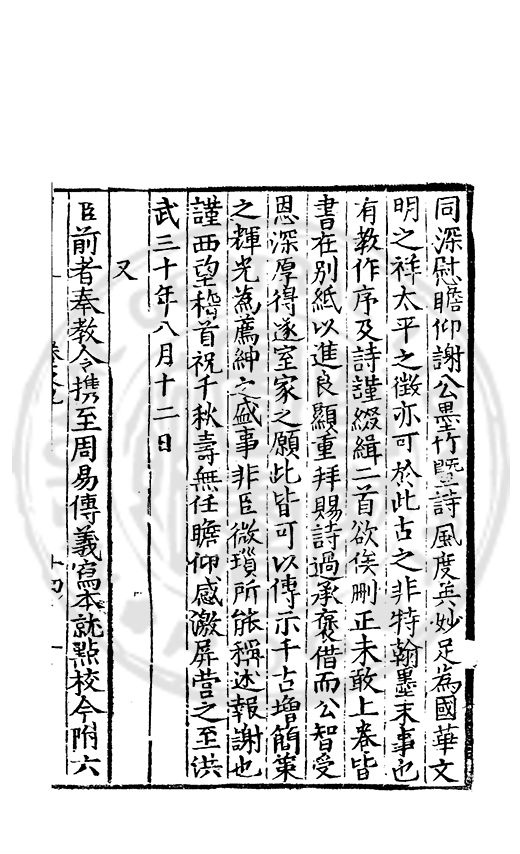 同深慰瞻仰謝公墨竹暨詩風度英妙足為國華文
明之祥太平之徵亦可於此古之非特翰墨末事也
有教作序及詩謹綴緝二首欲俟刪正未敢上卷皆
書在別紙以進良顯重拜賜詩過承褒借而公智受
恩深厚得遂室家之願此皆可以傳示千古增簡策
之輝光為薦紳之盛事非臣微瑣所能稱述報謝也
謹西望稽首祝千秋壽無任瞻仰感激屏營之至洪
武三十年八月十二日
又
臣前者奉教令携至周易傳義寫本就點校今附六